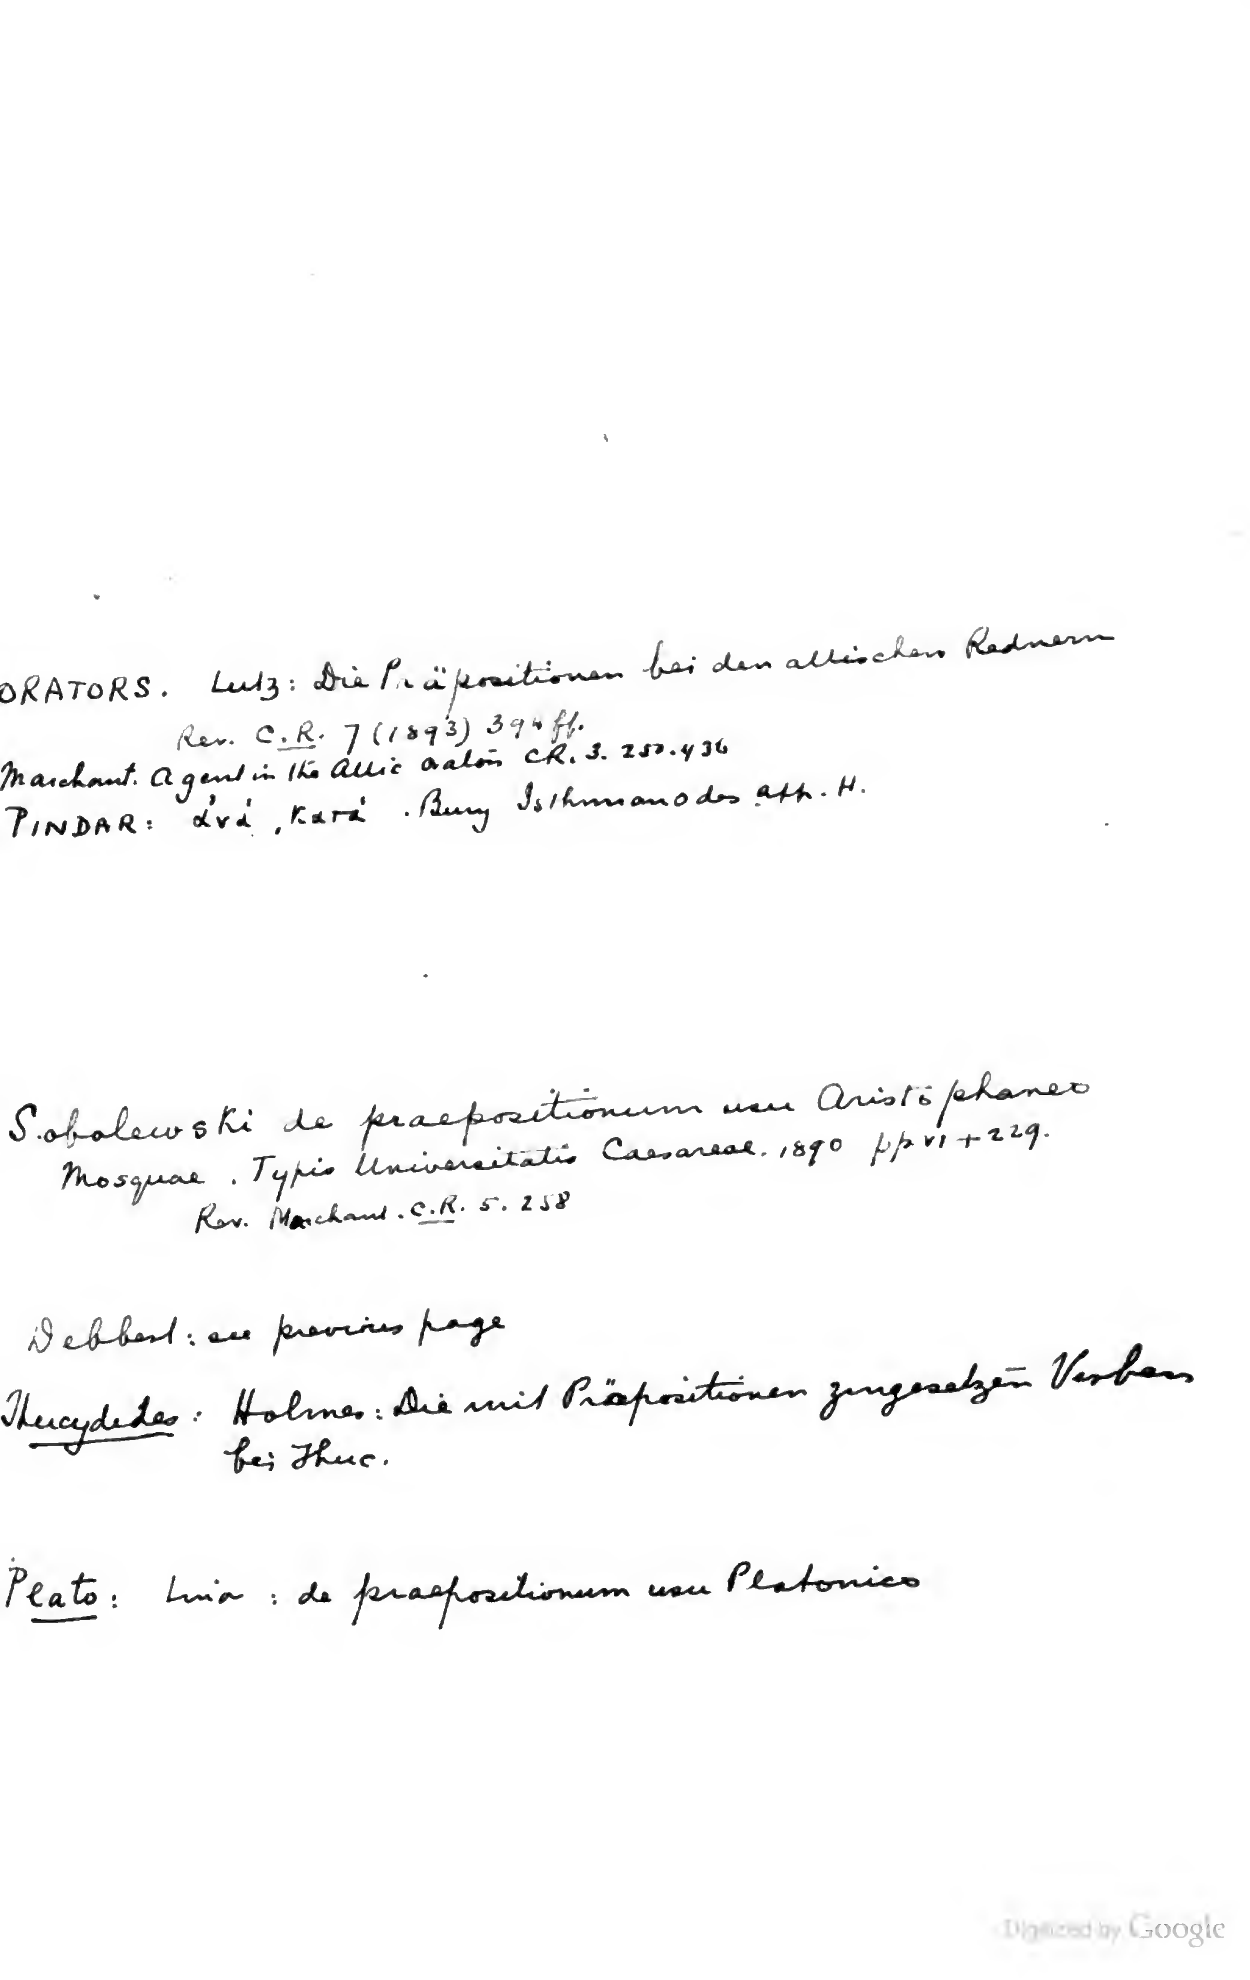 ORATORS. Lutz: Die Präpositionen bei den attischen Rednern
Rev. C.R. 7 (1893) 394 ff.
Marchant. Agent in the Attic orators CR. 3. 250. 436
PINDAR: ἀνά, κατά. Bury Isthmian odes app. H.
Sobolewski de praepositionum usu Aristophaneo
Mosquae. Typis Universitatis Caesareae. 1890 pp vi + 229.
Rev. Marchant. C.R. 5. 258
Debbert: see previous page
Thucydides: Holmes: Die mit Präpositionen zusgesetzen Verben
bei Thuc.
Plato: Lina: de praepositionum usu Platonico
Digitized by Google